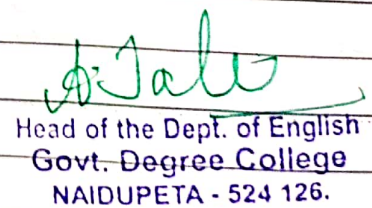 Head of the Dept. of English
Govt. Degree College
NAIDUPETA - 524 126.